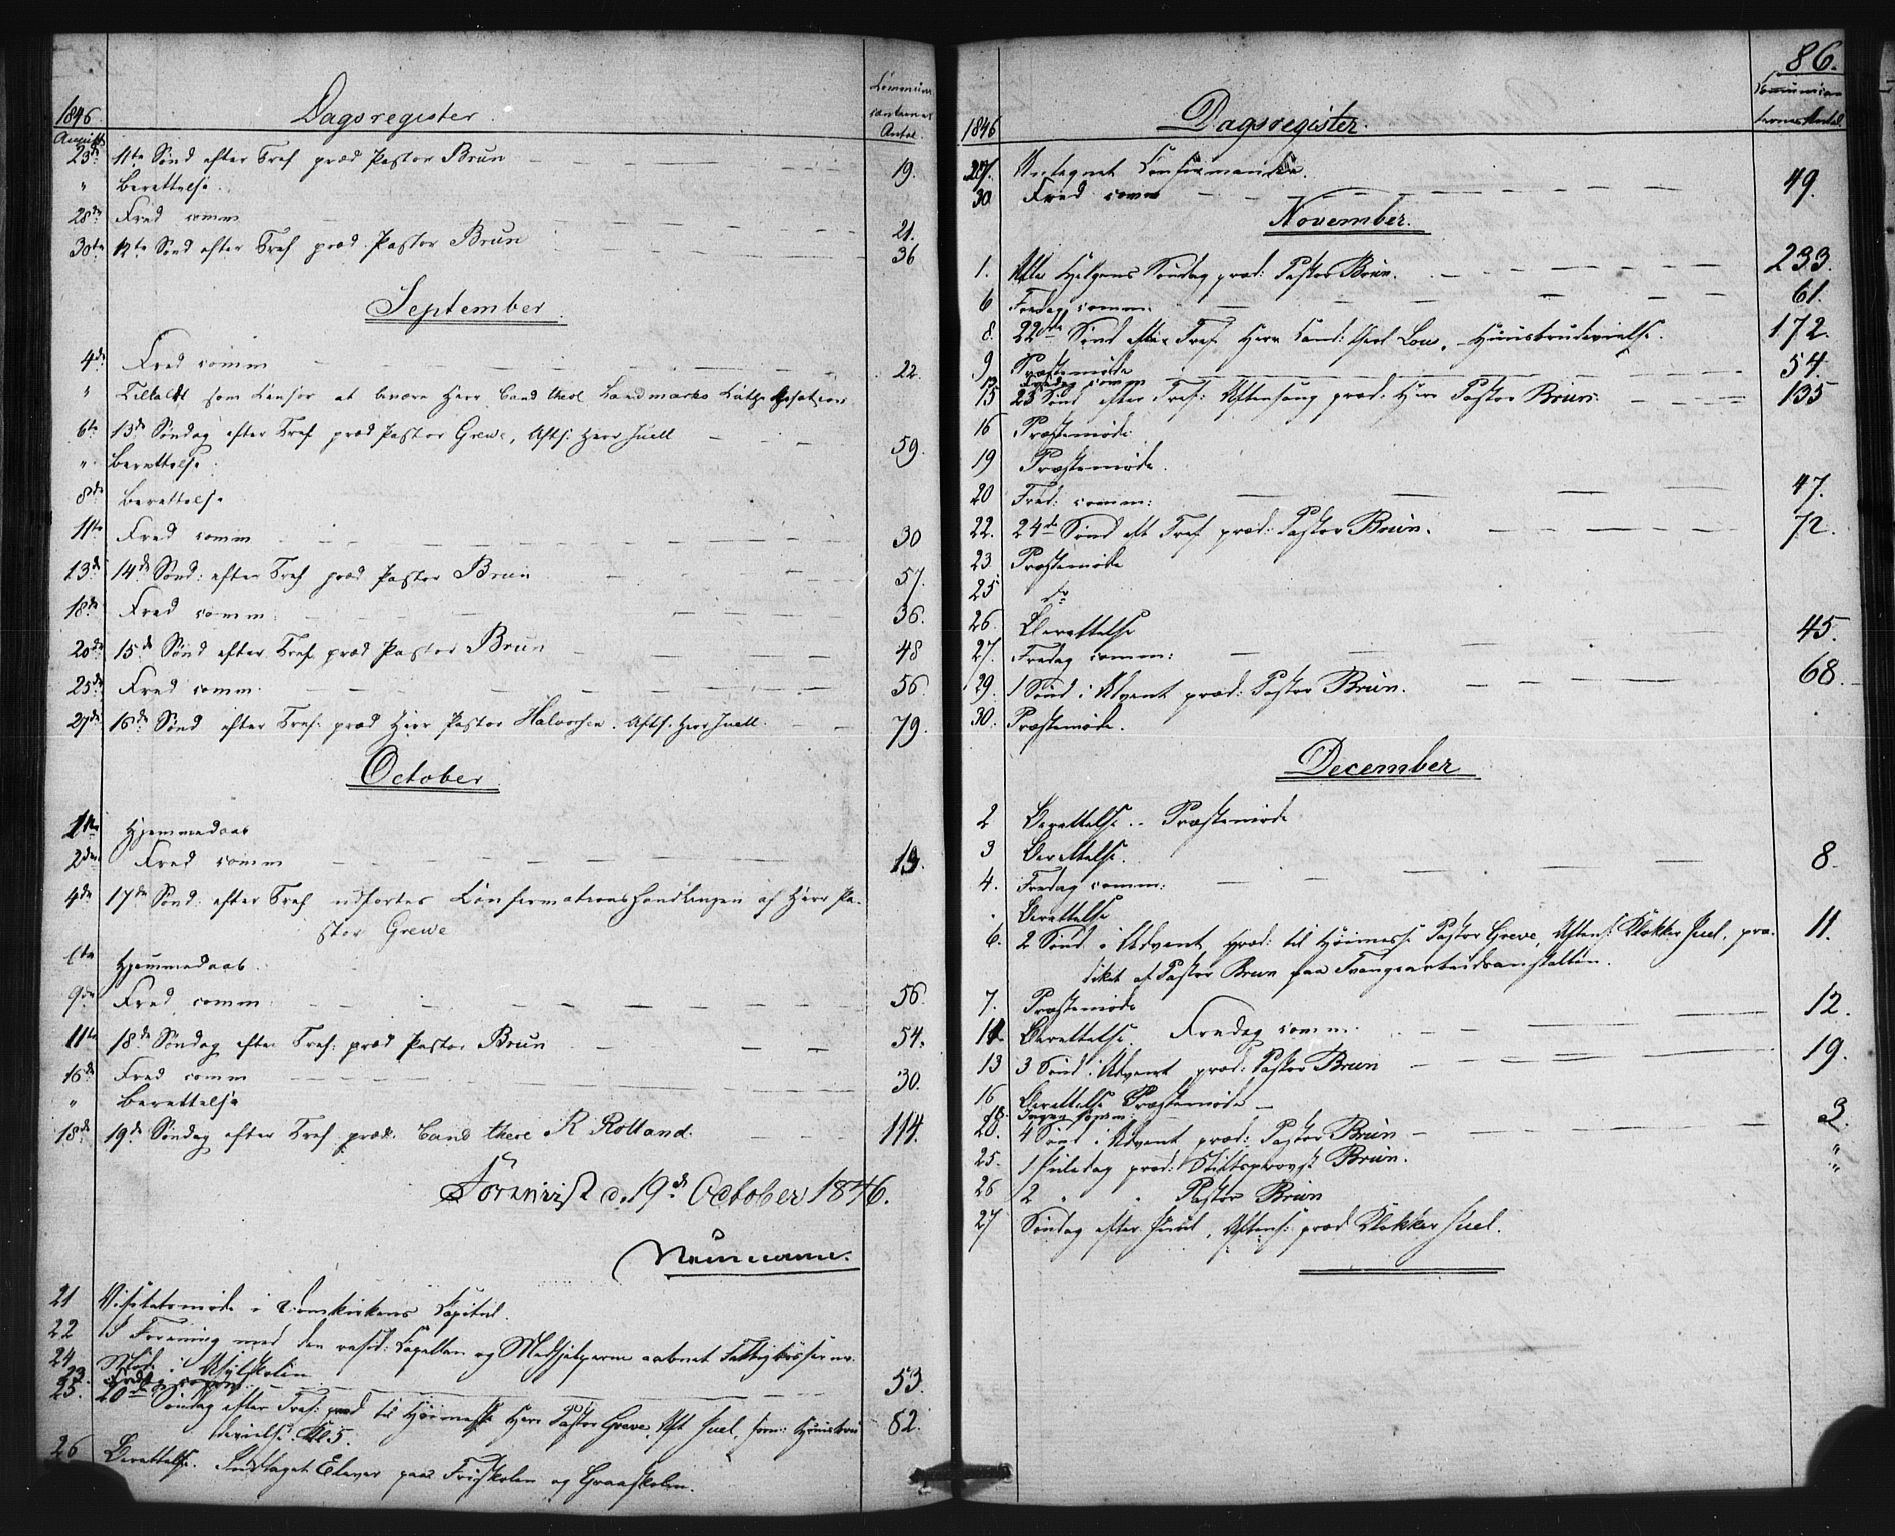 1846.
Dagsregister.
Communi-
canternes
Antal
August
23de 11te Sønd efter Tref præd Pastor Brun 19.
" Berettelse.
28de Fred comm 21.
30te 12te Sønd efter Tref præd. Pastor Brun 36
September.
4de Fred comm 22.
" Tilkaldt som Censor at bivære Herr Cand theol Landmarks
6te 13de Søndag efter Tref præd Pastor Greve, Afts: Herr Juell 59.
" Berettelse.
8de Berettelse
11te Fred comm 30
13de 14de Sønd: efter Tref præd Pastor Brun 57.
18de Fred comm: 36.
20de 15de Sønd efter Tref. præd Pastor Brun 48
25de Fred comm. 56.
27de 16de Sønd efter Tref: præd Herr Pastor Halvorsen. Afts. Herr Juell. 79.
October.
1ste Hjemmedaab
2den Fred comm 13.
4de 17de Sønd: efter Tref udførtes Confirmationshandlingen af Herr Pa-
stor Greve
Hjemmedaab.
9de Fred. comm: 56.
11te 18de Søndag efter Tref: præd Pastor Brun 54.
16de Fred comm 30.
" Berettelse
18de 19de Søndag efter Tref. præd. Cand theol R Rolland. 114.
Foreviist d. 19de October 1846.
Neumann.
21 Visitatsmøde i Domkirkens Capitel.
22 I Forening med den resid: Capellan og Medhjelperne aabnet Fattigbøsserne.
24 Møde i Asylskolen
23. Fredag comm 53.
25. 20de Søndag efter Tref: præd til Høimesse Herr Pastor Greve, Aft Juel, forr: Hustru
devielse. Kl 5. 82.
26 Berettelse. Indtaget Elever paa Friskolen og Graaskolen.
86.
1846
Dagsregister.
Communican-
ternes Antal.
27. Antaget Confirmander.
30 Fred comm 49.
November.
1. Alle Helgens Søndag præd: Pastor Brun. 233.
6 Fredag comm: 61.
8. 22de Sønd efter Tref. Herr Cand: theol Lous. - Huustrudevielse. 172.
9 Præstemøde
13 Fredag comm 54.
15 23 Sønd efter Tref: Aftensang præd: Herr Pastor Brun. 135
16 Præstemøde
19 Præstemøde.
20 Fred: comm: 47.
22. 24de Sønd eft Tref præd: Pastor Brun. 72.
23. Præstemøde
25 do
26. Berettelse
27. Fredag comm: 45.
29. 1 Sønd i Advent præd: Pastor Brun. 68.
30. Præstemøde.
December
2 Berettelse. - Præstemøde
3 Berettelse.
4. Fredag comm: 8.
. Berettelse
6. 2 Sønd i Advent præd: til Høimesse Pastor Greve, Aftens: Klokker Juel, præ- 11.
diket af Pastor Brun paa Tvangsarbeidsanstalten.
7. Præstemøde
11 Berettelse. Fredag comm: 12.
13 3 Sønd i Advent præd: Pastor Brun 19.
16 Berettelse Præstemøde
18. Ingen comm:
20. 4 Sønd i Advent præd: Pastor Brun 3.
25. 1 Juledag præd: Stiftsprovst Brun. "
26 2 " " Pastor Brun "
27 Søndag efter Juul, Aftens: præd Klokker Juel.